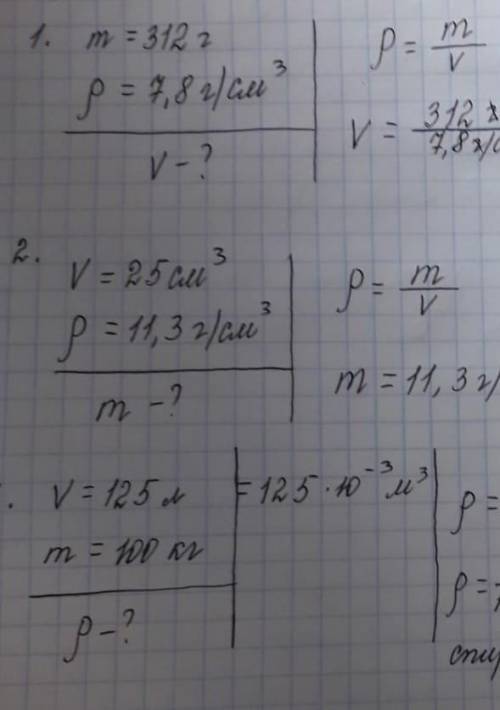 1. m = 312 г
ρ = 7,8 г/см³
V - ?
ρ = m/V
V = 312
7,8
2. V = 25 см³
ρ = 11,3 г/см³
m - ?
ρ = m/V
m = 11,3 г/
V = 125 л = 125 · 10⁻³ м³
m = 100 кг
ρ - ?
ρ =
ρ =